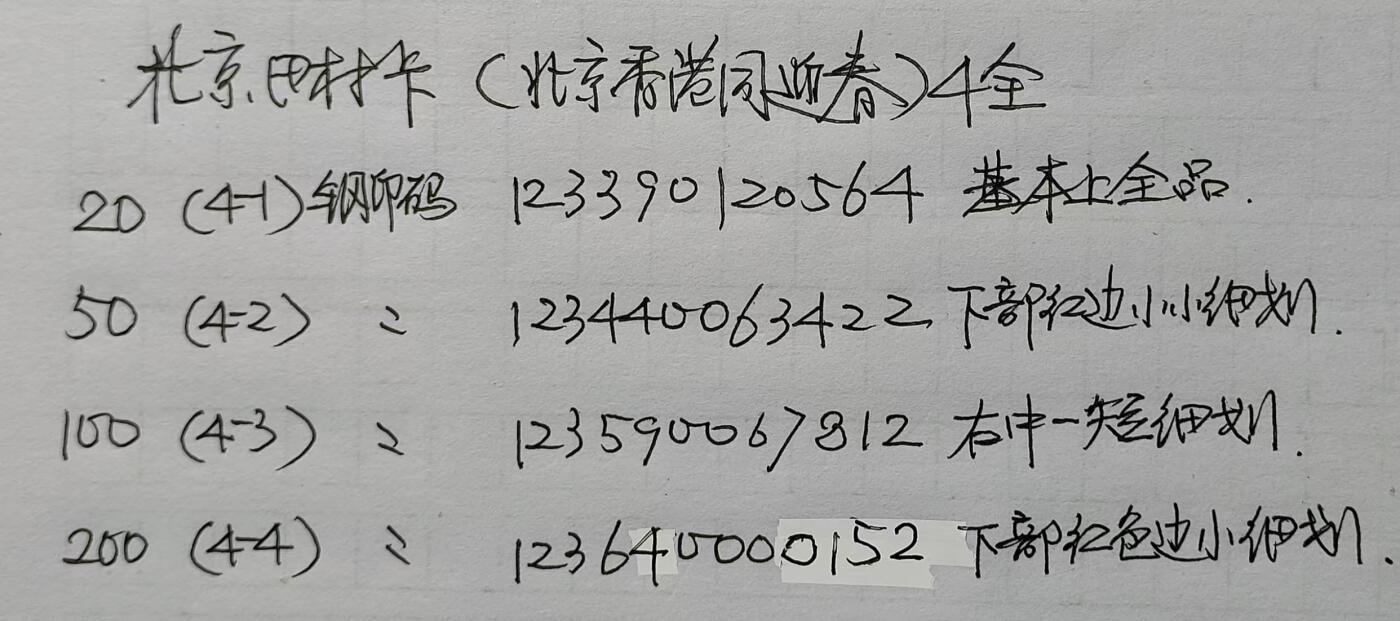 北京田村卡（北京香港同迎春）4全
20 (4-1) 钢印码 123390120564 基本上全品.
50 (4-2) 〃 123440063422 下部红边小小细划.
100 (4-3) 〃 123590067812 右中一短细划.
200 (4-4) 〃 123640000152 下部红色边小细划.